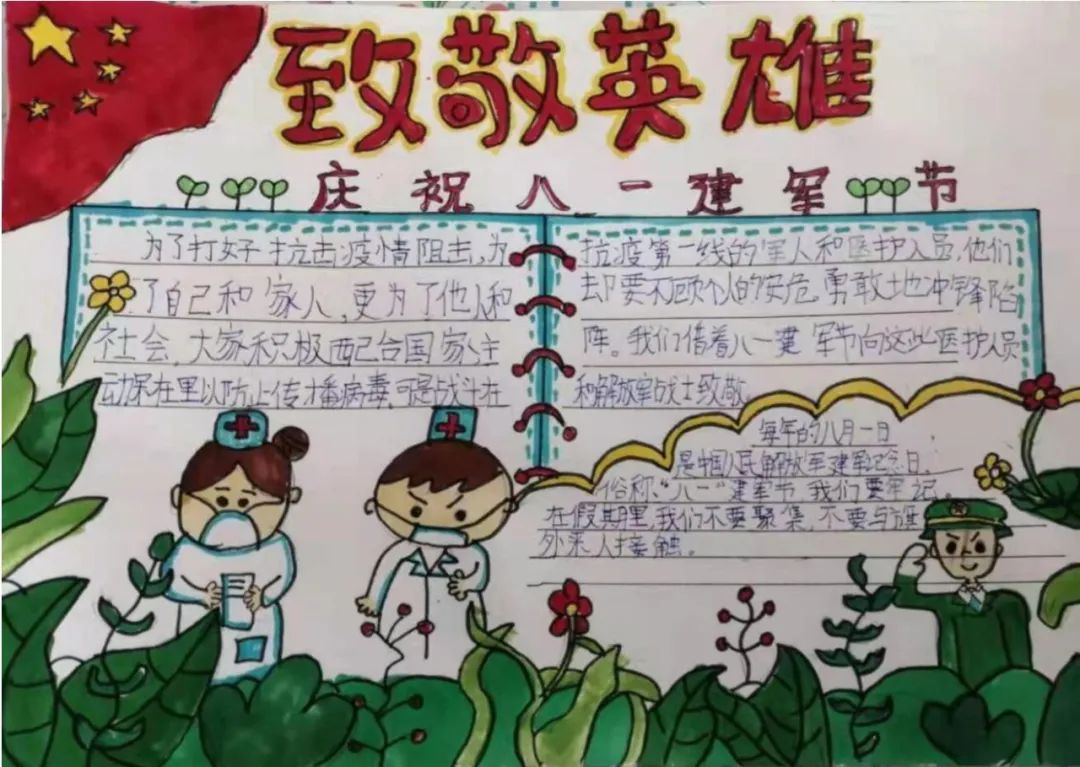 致敬英雄
庆祝八一建军节
为了打好抗击疫情阻击,为
了自己和家人,更为了他人和
社会,大家积极配合国家主
动呆在里以防止传播病毒,可是战斗在
抗疫第一线的军人和医护人员,他们
却要不顾个人的安危,勇敢地冲锋陷
阵。我们借着八一建军节向这些医护人员
和解放军战士致敬
每年的八月一日
是中国人民解放军建军纪念日,
俗称、“八一”建军节,我们要牢记。
在假期里,我们不要聚集,不要与
外来人接触。